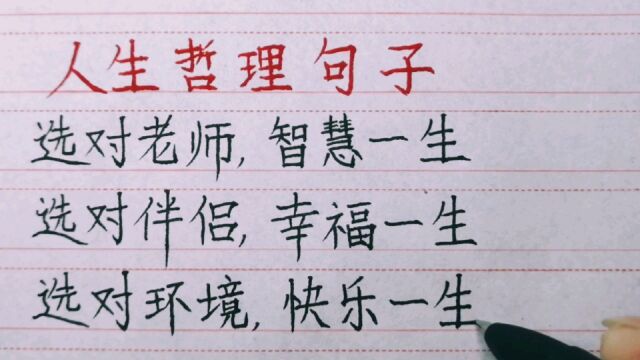 人生哲理句子
选对老师,智慧一生
选对伴侣,幸福一生
选对环境,快乐一生